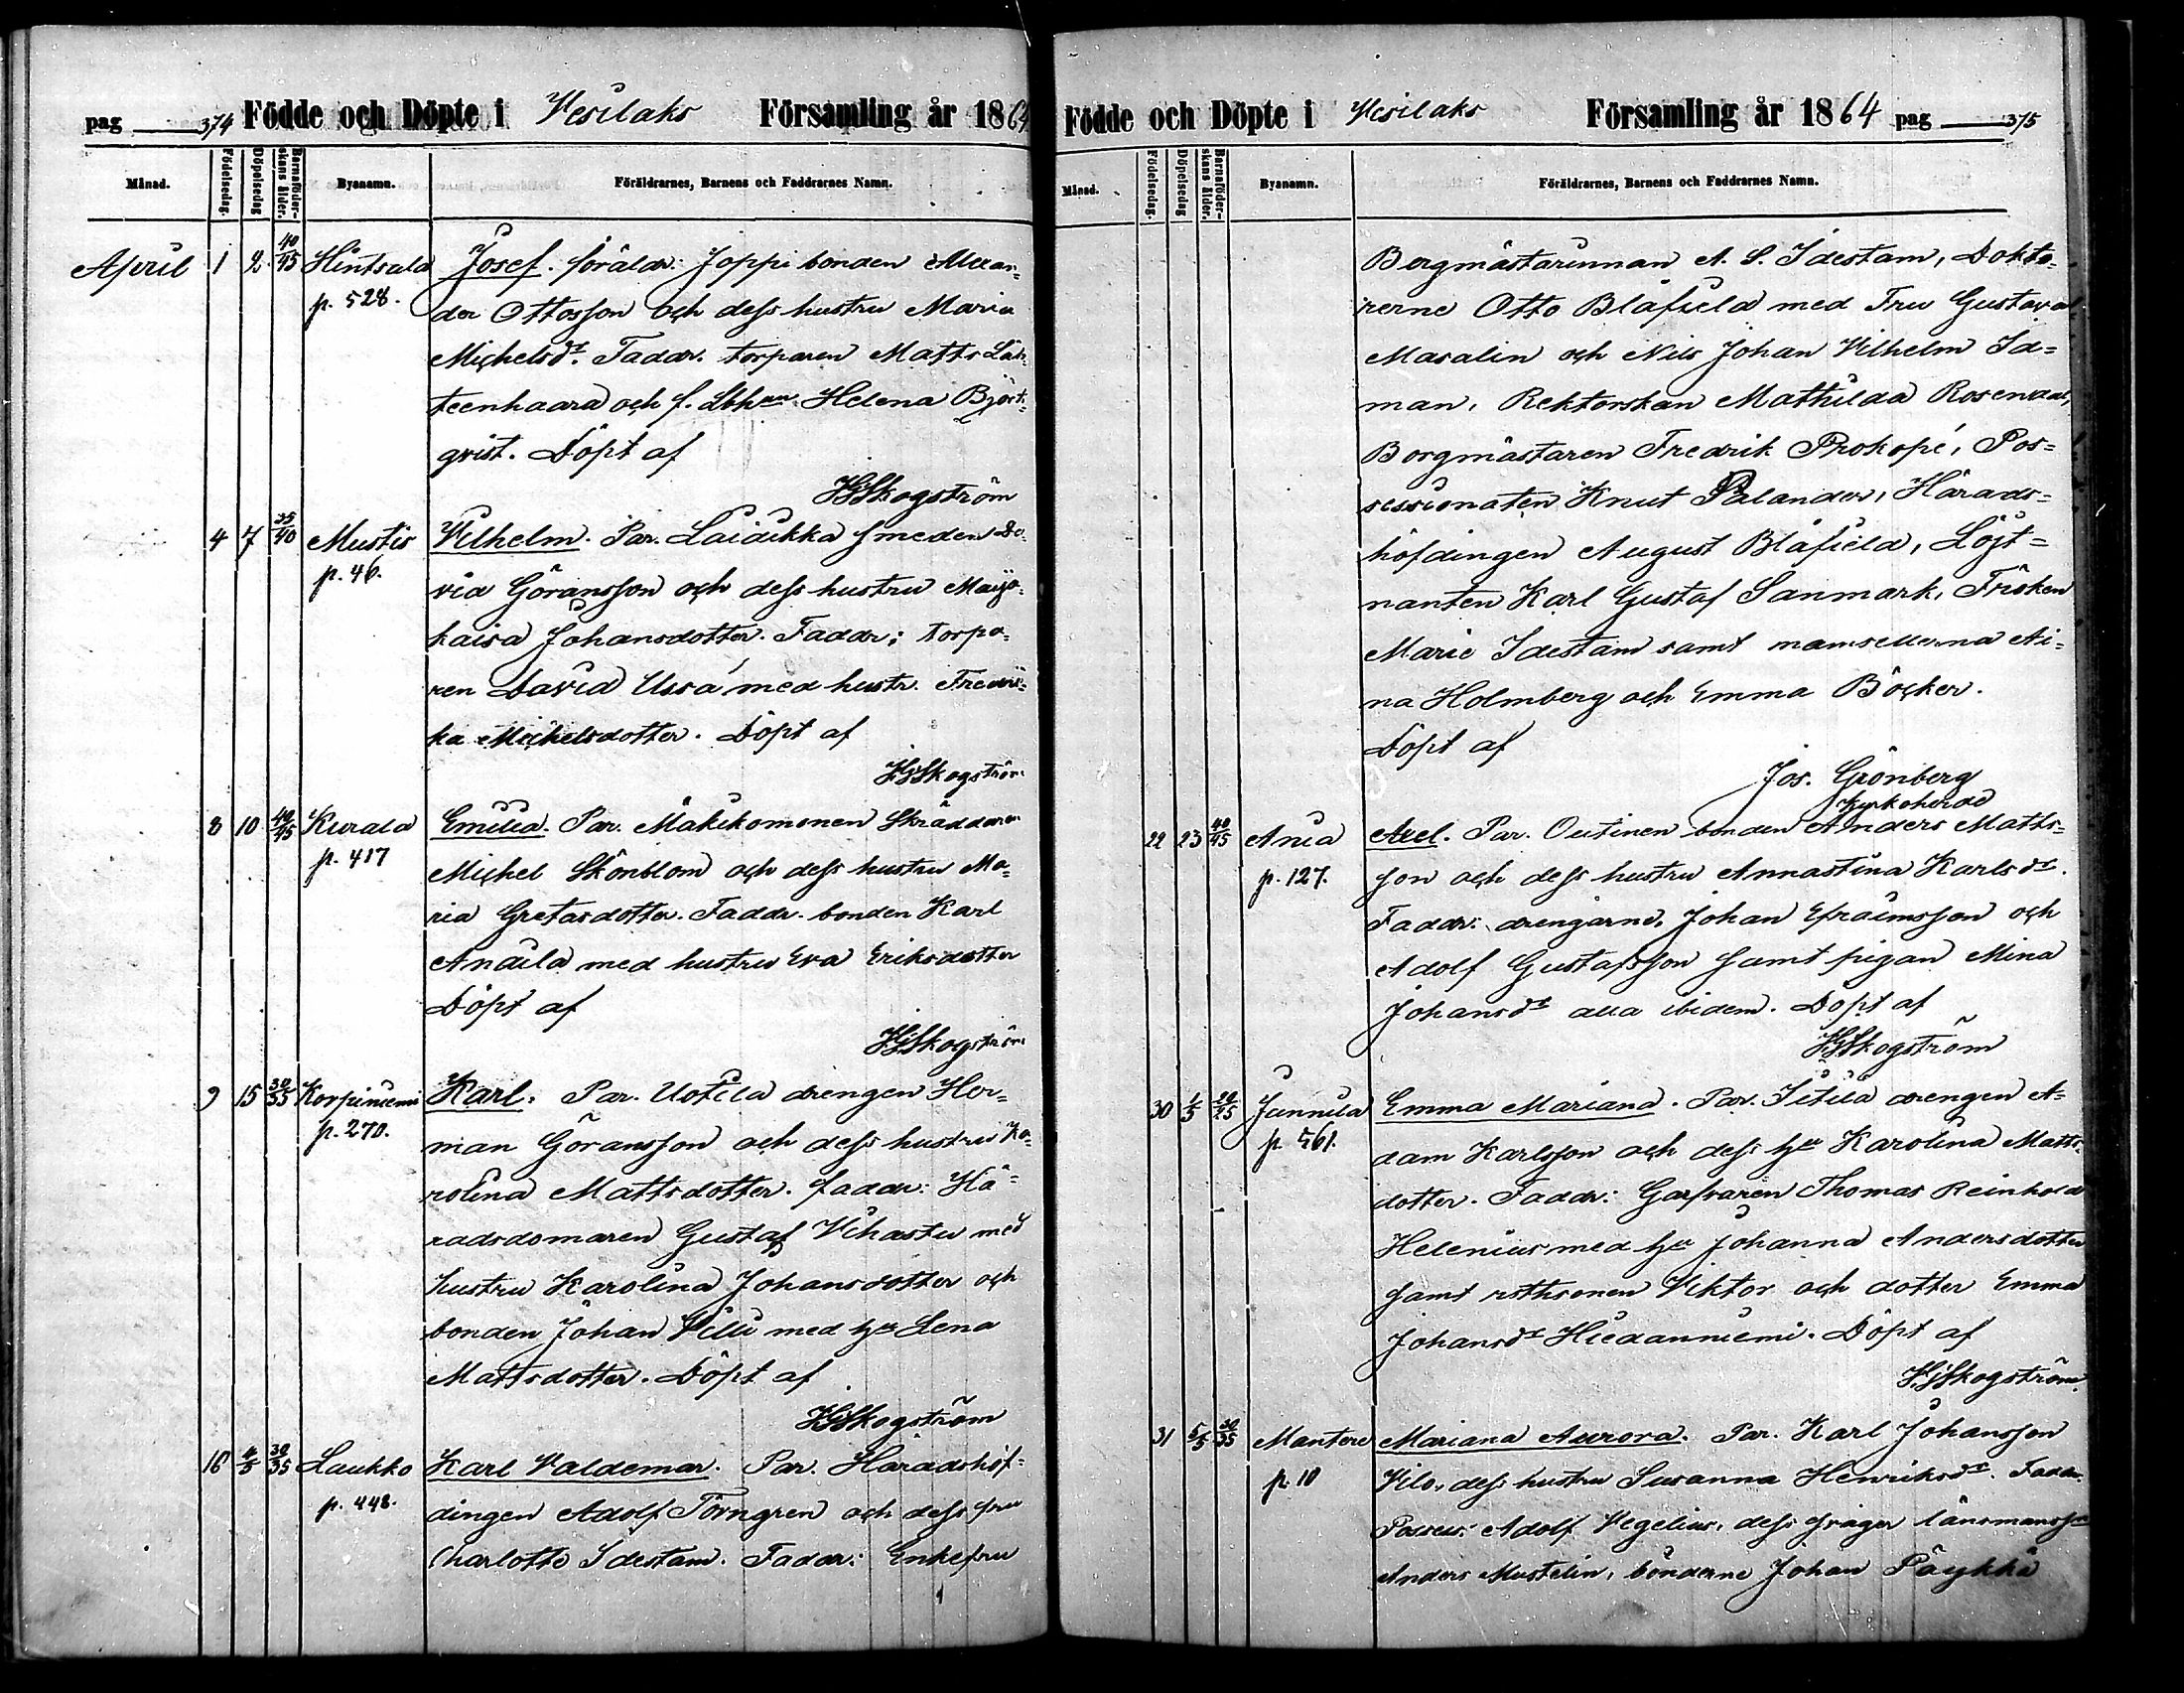 pag 374 Födde och Döpte i Vesilaks Församling år 1864
Månad. Födelsedag. Döpelsedag Barnaföderskans ålder. Byanamn. Föräldrarnes, Barnens och Faddrarnes Namn.
April 1 2 40/45 Hintsala Josef. föräldr: Joppi bonden Alexan-
p. 528. der Ottosson och dess hustru Maria
Michelsdr. Faddr. torparen Matts Läh-
teenhaara och f. Helena Björk-
qvist. Döpt af
HGSkogström
4 7 35/40 Mustis Vilhelm. Par. Laidikka smeden Da-
p. 46. vid Göransson och dess hustru Maija-
kaisa Johansdotter. Faddr: torpa-
ren David Ussa med hustr. Fredri-
ka Michelsdotter. Döpt af
HGSkogström
8 10 40/45 Kurala Emilia. Par. Mäkikomonen Skräddaren
p. 417 Michel Skönblom och dess hustru Ma-
ria Gretasdotter. Faddr. bonden Karl
Andila med hustru Eva Eriksdotter
Döpt af
HGSkogström
9 15 30/35 Korpiniemi Karl. Par. Uotila drengen Her-
p. 270. man Göransson och dess hustru Ka-
rolina Mattsdotter. faddr: Hä-
radsdomaren Gustaf Vihastu med
hustru Karolina Johansdotter och
bonden Johan Villi med hu Lena
Mattsdotter. Döpt af
HGSkogström
16 4/5 30/35 Laukko Karl Valdemar. Par. Häradshöf-
p. 448. dingen Adolf Törngren och dess fru
Charlotte Idestam. Faddr: Enkefru
Födde och Döpte i Vesilaks Församling år 1864 pag 375
Månad. Födelsedag. Döpelsedag Barnaföderskans ålder. Byanamn. Föräldrarnes, Barnens och Faddrarnes Namn.
Bergmästarinnan A. S. Idestam, Dokto-
rerne Otto Blåfield med Fru Gustava
Masalin och Nils Johan Vilhelm Id-
man, Rektorskan Mathilda Rosendal,
Borgmästaren Fredrik Prokopé, Pos-
sessionaten Knut Palander, Härads-
höfdingen August Blåfield, Löjt-
nanten Karl Gustaf Sanmark, Fröken
Marie Idestam samt mamsellerna Ai-
na Holmberg och Emma Böcker.
Döpt af
Jos. Grönberg
Kyrkoherde
22 23 40/45 Ania Axel. Par. Outinen bonden Anders Matts-
p. 127. son och dess hustru Annastina Karlsdr.
Faddr: drengarne, Johan Efraimsson och
Adolf Gustafsson samt pigan Mina
Johansdr alla ibidem. Döpt af
HGSkogström
30 1/5 20/25 Junnila Emma Mariana. Par. Sitila drengen A-
p. 561. dam Karlsson och dess hu Karolina Matts-
dotter. Faddr: Garfvaren Thomas Reinhold
Helenius med hu Johanna Andersdotter
samt rsthsonen Viktor och dotter Emma
Johansdr Hiedanniemi. Döpt af
HGSkogström
31 5/5 30/35 Mantere Mariana Aurora. Par. Karl Johansson
p. 10 Vilo, dess hustru Susanna Henriksdr. Faddr.
Possess: Adolf Vegelius, dess svåger länsmanssn
Anders Mustelin, bönderne Johan Päykkä